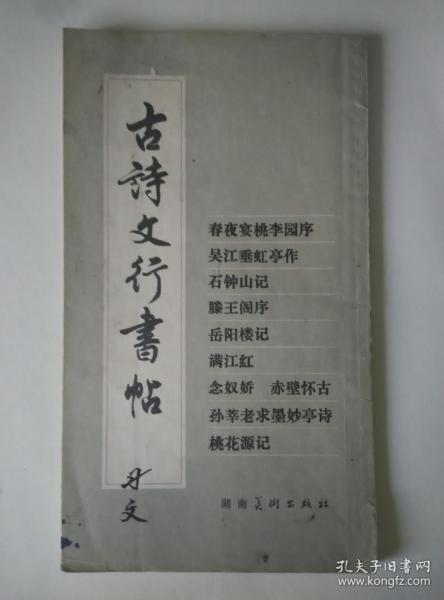 古詩文行書帖
丹文
春夜宴桃李园序
吴江垂虹亭作
石钟山记
滕王阁序
岳阳楼记
满江红
念奴娇 赤壁怀古
孙莘老求墨妙亭诗
桃花源记
湖南美術出版社
孔夫子旧书网
www.kongfz.com